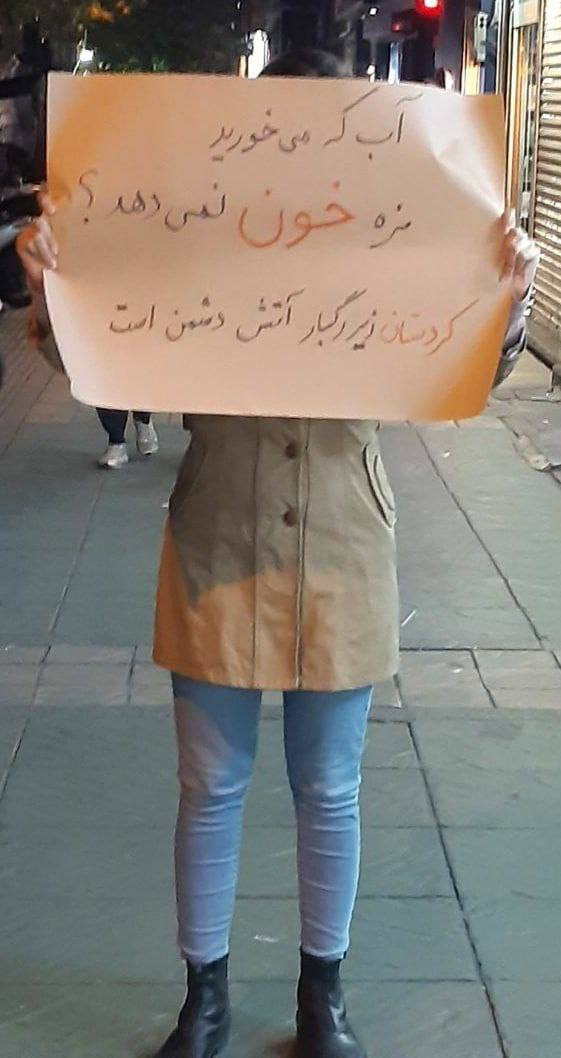 آب که می‌خورید
مزه خون نمی‌دهد؟
کردستان زیر رگبار آتش دشمن است